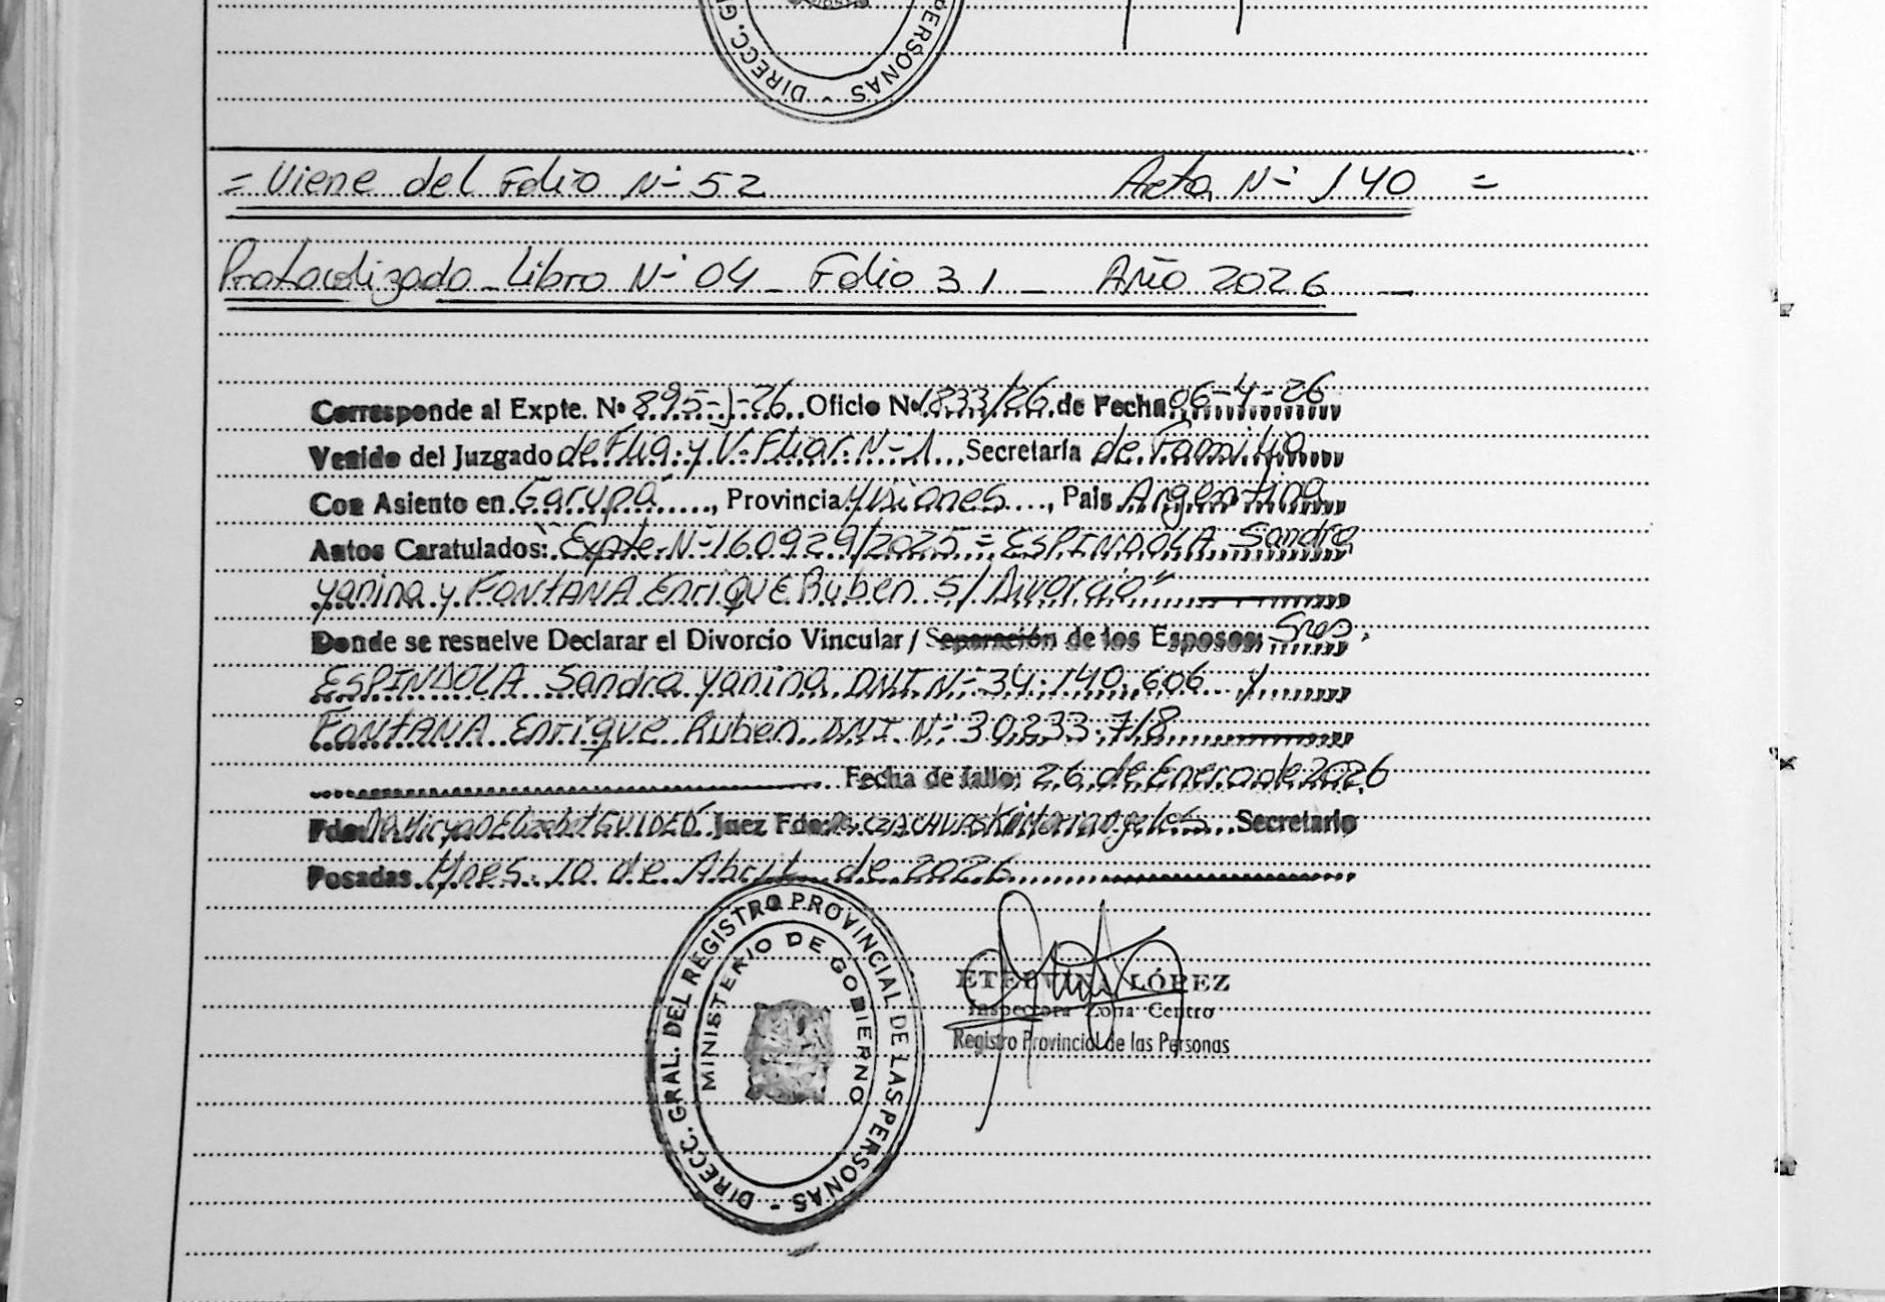 DIRECC. G
PERSONAS -
= Viene del Folio Nº 52 Acta Nº 140 =
Protocolizado - Libro Nº 04 - Folio 31 - Año 2026 -
Corresponde al Expte. Nº 895-J-26 Oficio Nº 1833/26 de Fecha 06-4-26
Venido del Juzgado de Flia. y V. Fliar. N-1 Secretaría de Familia
Con Asiento en Garupá, Provincia Misiones, Pais Argentina
Autos Caratulados: "Expte. N-160929/2025 = ESPINDOLA Sandra
Yanina y FONTANA Enrique Ruben s/ Divorcio"
Donde se resuelve Declarar el Divorcio Vincular / Separación de los Esposos: Sres.
ESPINDOLA Sandra Yanina DNI. Nº 34.140.606 y
FONTANA Enrique Ruben DNI. Nº 30.233.718
Fecha de fallo: 26 de Enero de 2026
Fdo: Elizabet Juez Fdo: Secretario
Posadas, Mnes. 10 de Abril de 2026
DIRECC. GRAL. DEL REGISTRO PROVINCIAL DE LAS PERSONAS -
MINISTERIO DE GOBIERNO
ETELVINA LÓPEZ
Inspectora Zona Centro
Registro Provincial de las Personas